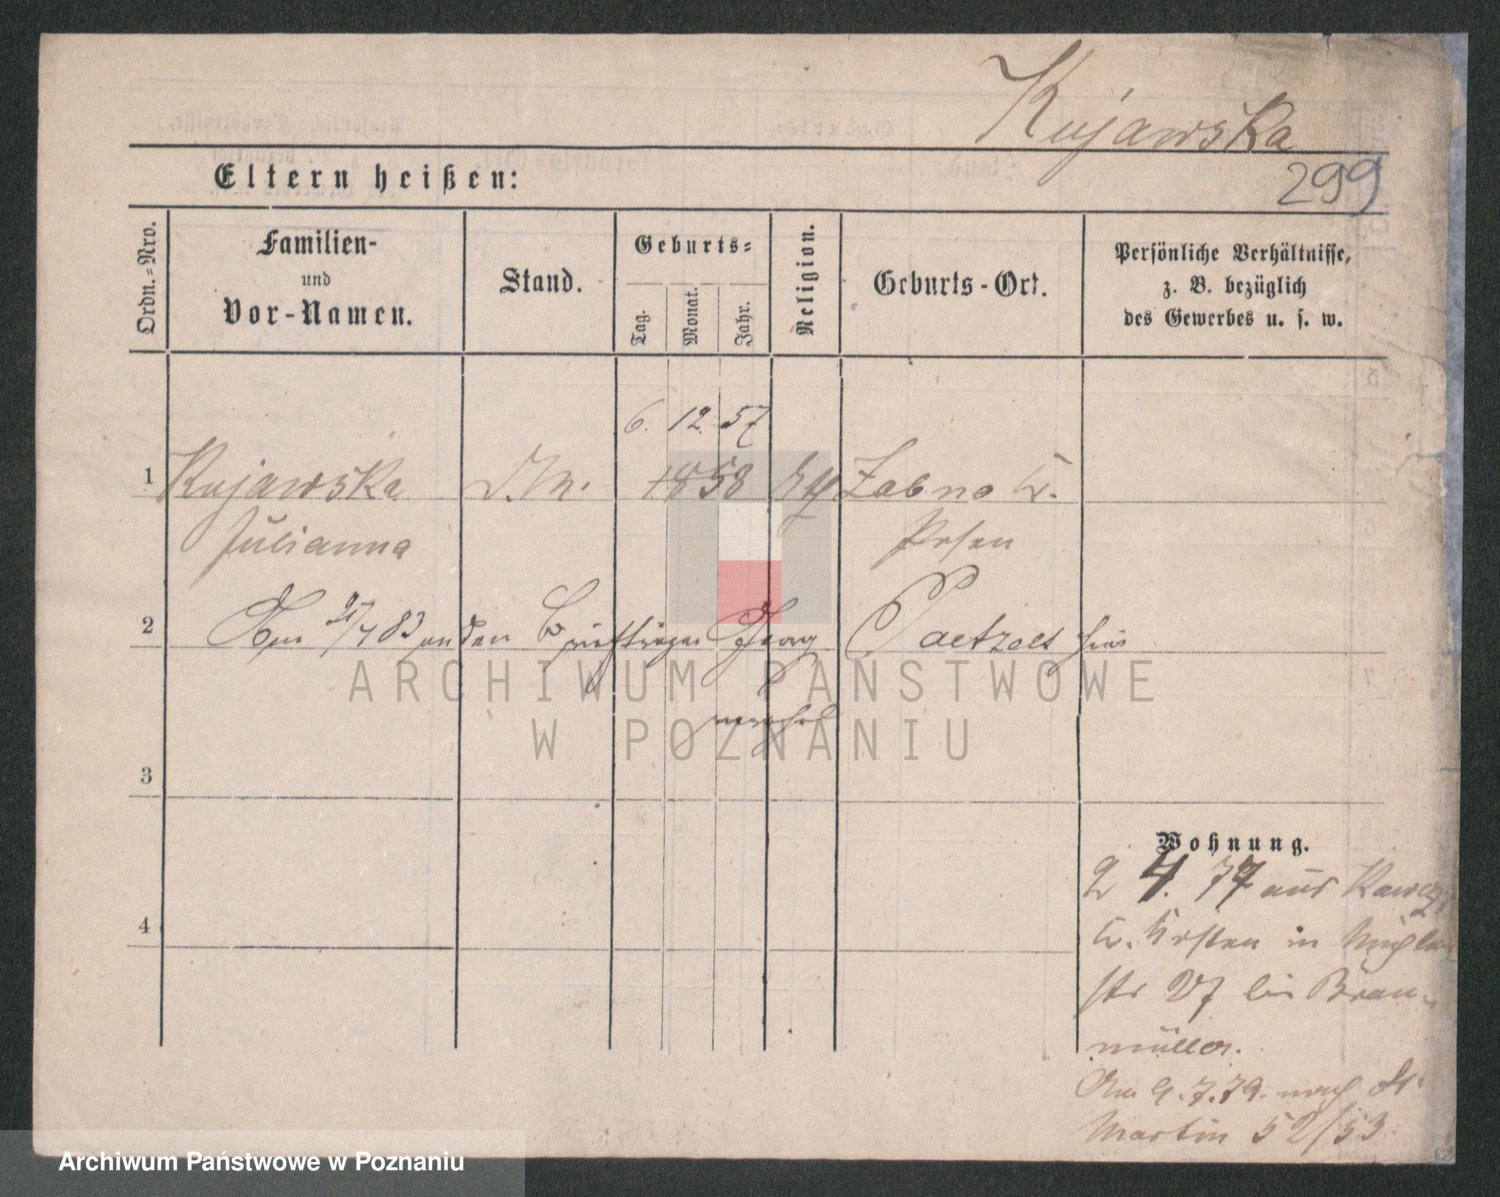 Kujawska
299
Eltern heißen:
Ordn.=Nro.
Familien-
und
Vor-Namen.
Stand.
Geburts=
Tag.
Monat.
Jahr.
Religion.
Geburts-Ort.
Persönliche Verhältnisse,
z. B. bezüglich
des Gewerbes u. s. w.
6. 12. 57
1 Kujawska 1858 Zabno K.
Julianna Posen
2 Am 21/7 83 an den Briefträger Georg Paetzold hier
3
4
Wohnung.
2 4. 77 aus
K. Kosten in
str 27 bei Brau-
müller.
Am 9. 7. 79. nach St
Martin 52/53
ARCHIWUM PAŃSTWOWE
W POZNANIU
Archiwum Państwowe w Poznaniu